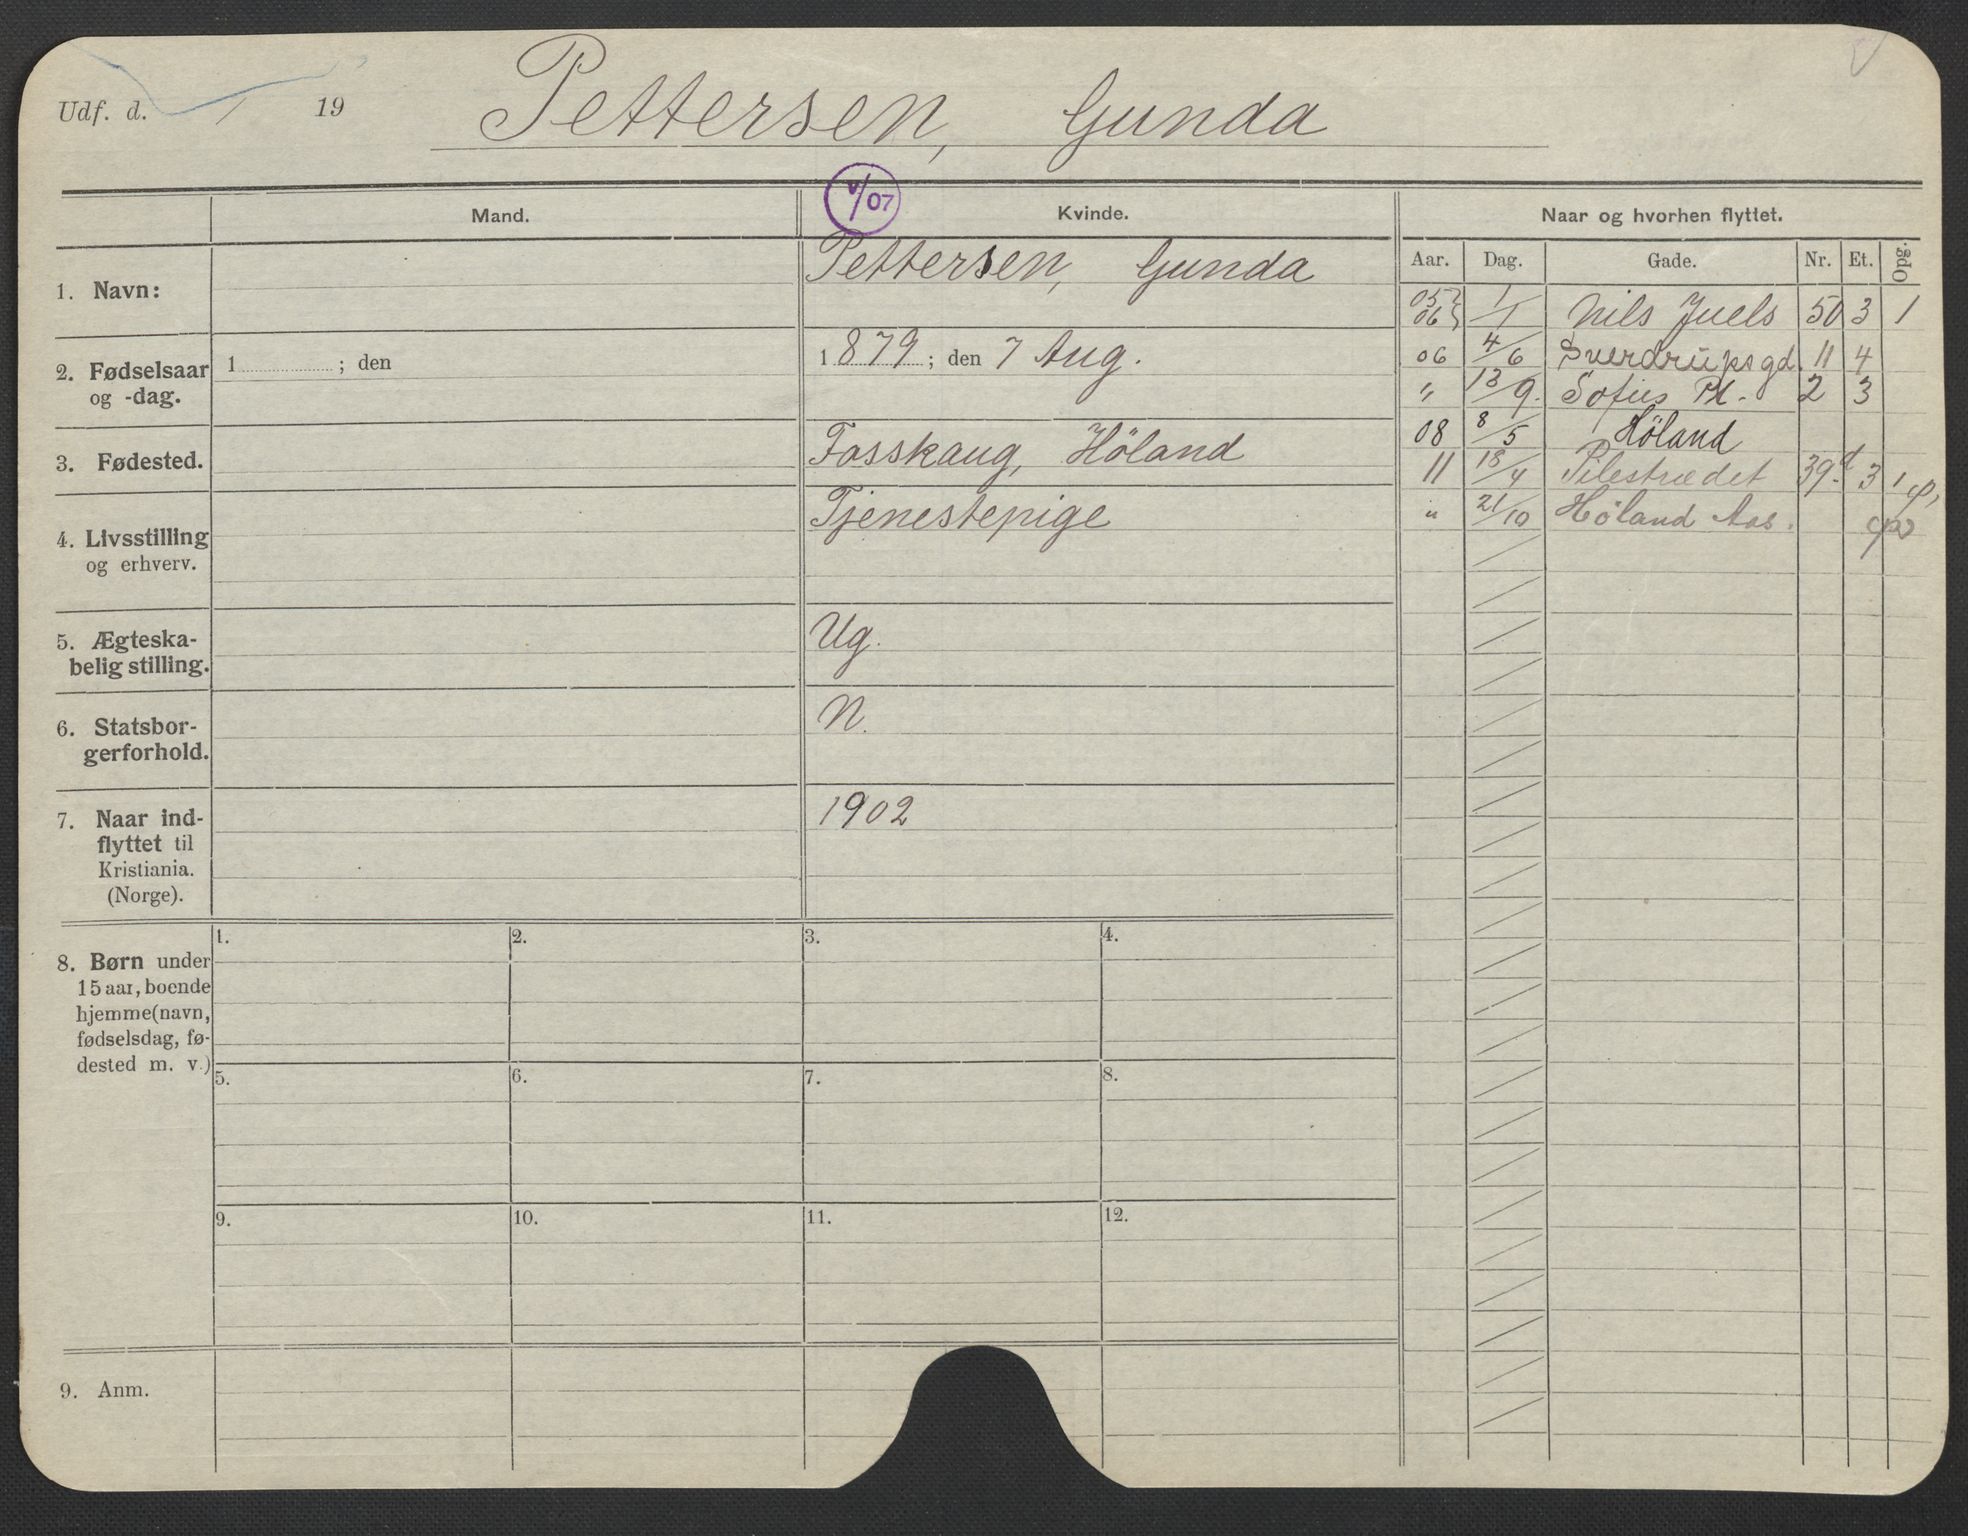 Udf. d. / 19 Pettersen, Gunda
V/07
Mand. Kvinde. Naar og hvorhen flyttet.
Aar. Dag. Gade. Nr. Et. Opg.
1. Navn: Pettersen, Gunda
2. Fødselsaar og -dag. 1 ; den
1879 ; den 7 Aug.
3. Fødested. Fosskaug, Höland
4. Livsstilling og erhverv. Tjenestepige
5. Ægteska-
belig stilling. Ug.
6. Statsbor-
gerforhold. N.
7. Naar ind-
flyttet til
Kristiania.
(Norge). 1902
05 06 1/1 Nils Juels 50 3 1
06 4/6 Sverdrupsgd. 11 4
" 13/9. Sofies Pl. 2 3
08 8/5 Höland
11 18/4 Pilestrædet 39d 3 1
" 21/10 Høland Aas.
8. Børn under
15 aar, boende
hjemme (navn,
fødselsdag, fø-
dested m. v.)
1. 2. 3. 4.
5. 6. 7. 8.
9. 10. 11. 12.
9. Anm.